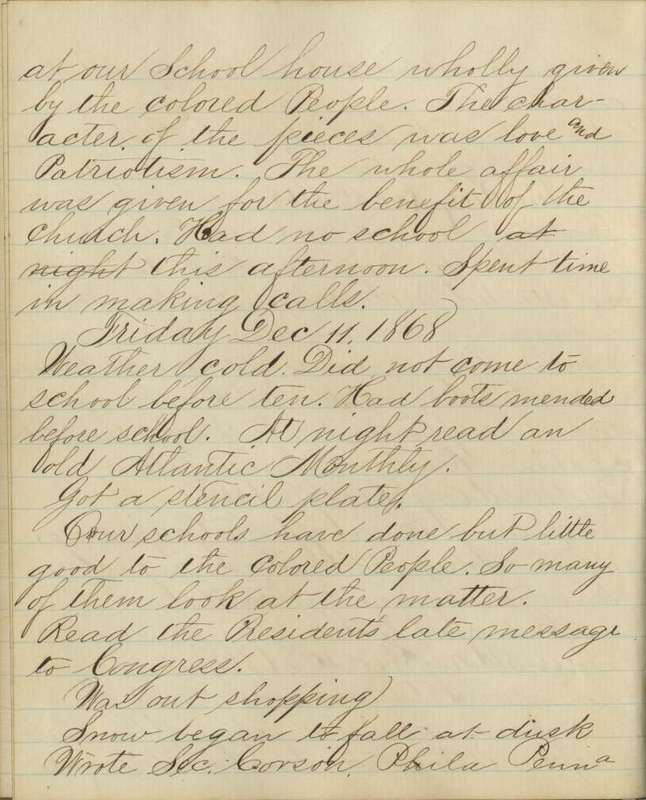 at our School house wholly given
by the colored People. The char-
acter of the pieces was love and
Patriotism. The whole affair
was given for the benefit of the
Church. Had no school at
night this afternoon. Spent time
in making calls.
Friday Dec 11, 1868
Weather cold. Did not come to
school before ten. Had boots mended
before school. At night read an
old Atlantic Monthly.
Got a stencil plate.
Our schools have done but little
good to the Colored People. So many
of them look at the matter.
Read the Presidents late message
to Congress.
Was out shopping
Snow began to fall at dusk
Wrote Sec. Corson, Phila Penna